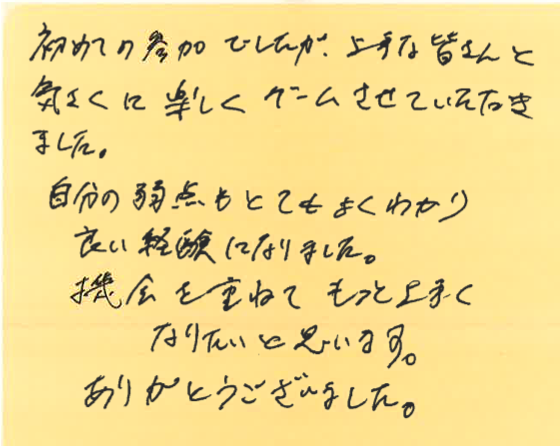 初めての参加でしたが、上手な皆さんと
気さくに楽しくゲームさせていただき
ました。
自分の弱点もとてもよくわかり
良い経験になりました。
機会を重ねてもっと上手く
なりたいと思います。
ありがとうございました。